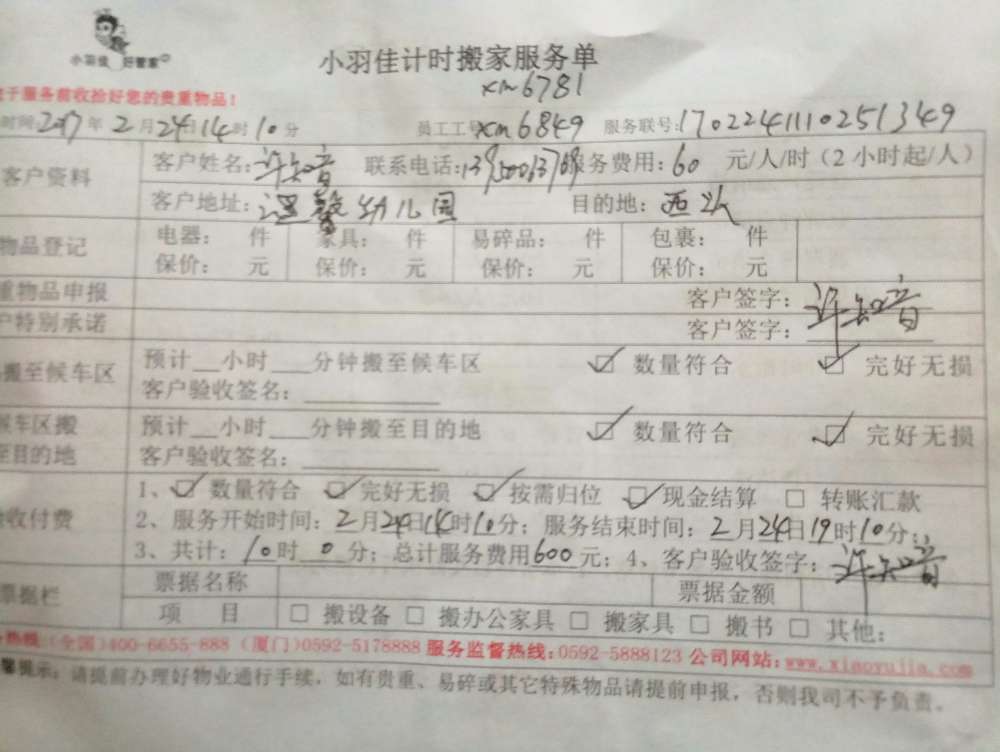 小羽佳 好管家
小羽佳计时搬家服务单
xm6781
于服务前收拾好您的贵重物品！
时间:2017年2月24日14时10分 员工工号:xm6849 服务联号:170224111025 1349
客户资料 客户姓名:许知音 联系电话: 服务费用:60 元/人/时(2小时起/人)
客户地址:温馨幼儿园 目的地:
物品登记 电器: 件 家具: 件 易碎品: 件 包裹: 件
保价: 元 保价: 元 保价: 元 保价: 元
重物品申报 客户签字:许知音
户特别承诺 客户签字:
搬至候车区 预计__小时___分钟搬至候车区 ☑ 数量符合 ☑ 完好无损
客户验收签名:
候车区搬 预计__小时___分钟搬至目的地 ☑ 数量符合 ☑ 完好无损
至目的地 客户验收签名:
收付费 1、☑ 数量符合 ☑ 完好无损 ☑ 按需归位 ☑ 现金结算 □ 转账汇款
2、服务开始时间:2月24日14时10分；服务结束时间:2月24日19时10分；
3、共计:10时0分；总计服务费用600元；4、客户验收签字:许知音
票据栏 票据名称 票据金额
项 目 □ 搬设备 □ 搬办公家具 □ 搬家具 □ 搬书 □ 其他:
热线:(全国)400-6655-888 (厦门)0592-5178888 服务监督热线:0592-5888123 公司网站:www.xiaoyujia.com
馨提示:请提前办理好物业通行手续，如有贵重、易碎或其它特殊物品请提前申报，否则我司不予负责。